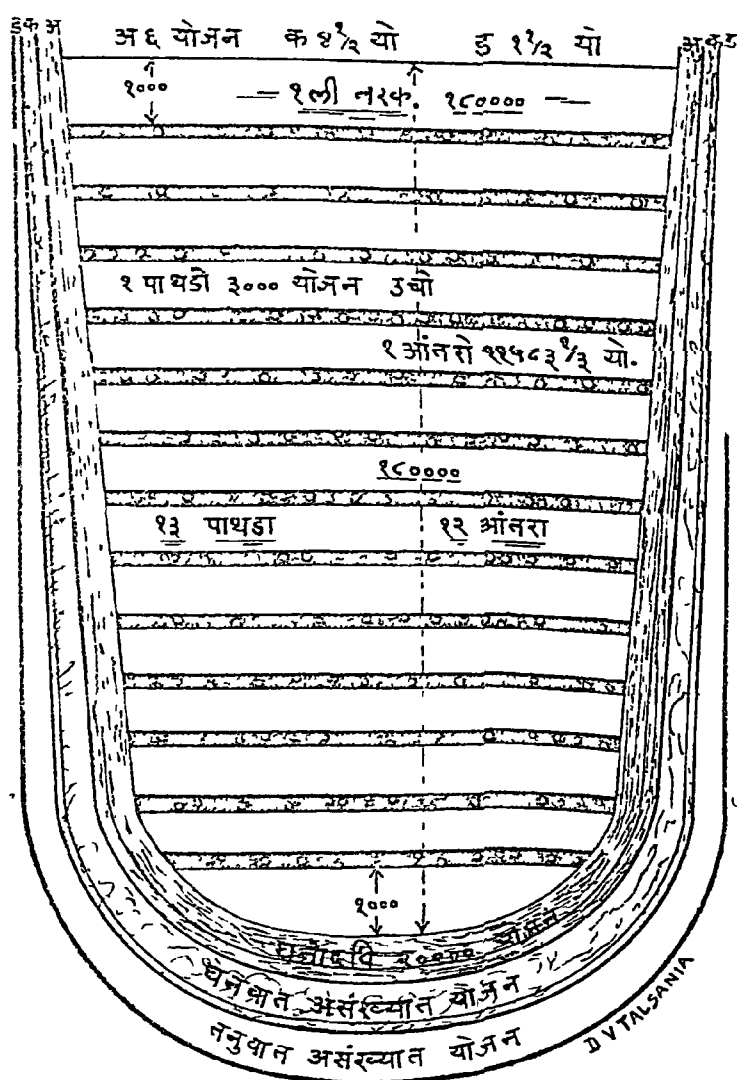 इ क अ
अ ६ योजन क ४ १/२ यो इ १ १/२ यो
अ क इ
१०००
१ली नरक. १८००००
१ पाथडो ३००० योजन उचो
१ आंनरो ११५८३ १/३ यो.
१८००००
१३ पाथडा १२ आंनरा
१०००
घनोदधि २०००० योजन
घनवात असंख्यात योजन
तनुवात असंख्यात योजन
D V TALSANIA